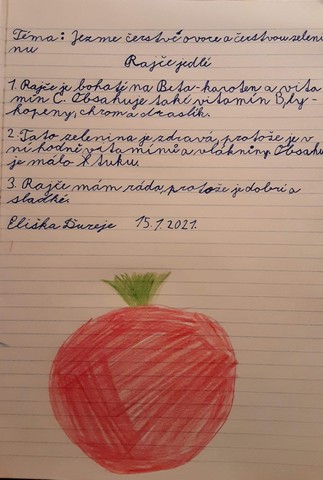 Téma: Jezme čerstvé ovoce a čerstvou zeleni
nu
Rajče jedlé
1. Rajče je bohaté na Beta-karoten a vita
mín C. Obsahuje také vitamín B, ly-
kopeny, chrom a draslík.
2. Tato zelenina je zdravá, protože je v
ní hodně vitamínů a vlákniny. Obsahu
je málo tuku.
3. Rajče mám ráda, protože je dobré a
sladké.
Eliška Ďureje 15.1.2021.